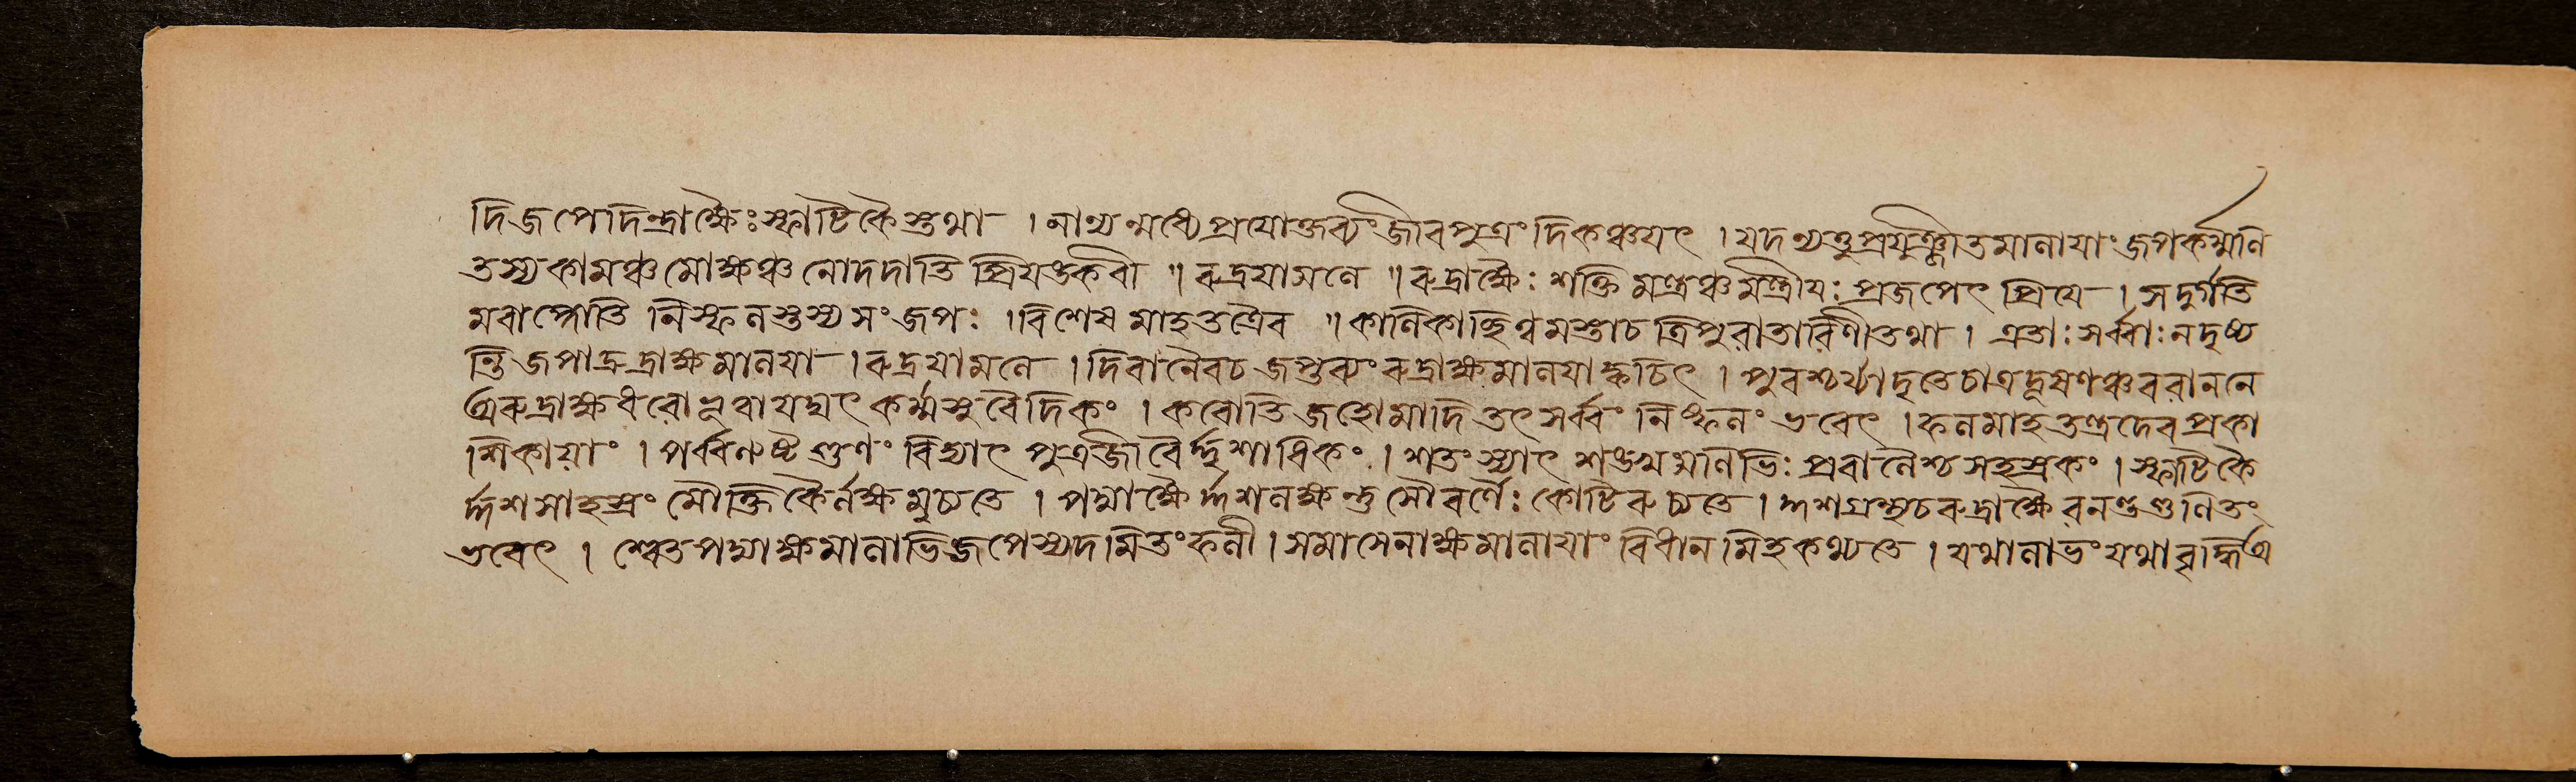 দিজপেদিন্দ্রাক্ষৈঃস্ফাটিকৈস্তথা । নান্যন্মধ্যেপ্রযোক্তব্যংজীবপুত্রংদিকঞ্চযৎ । যদন্যত্তুপ্রযুঞ্জীতমালাযাংজপকর্ম্মনি
তস্যকামঞ্চমোক্ষঞ্চ নোদদাতি প্রিযঙ্করী ॥ রুদ্রযামলে ॥ রুদ্রাক্ষৈঃ শক্তিমন্ত্রঞ্চমন্ত্রীযঃ প্রজপেৎ প্রিযে । সদুর্গতি
মবাপ্নোতি নিস্ফলস্তস্যসংজপঃ । বিশেষমাহতত্রৈব ॥ কালিকাচ্ছিন্নমস্তাচ ত্রিপুরাতারিণীতথা । এতাঃসর্ব্বাঃনদুষ্য
ন্তিজপাদ্রুদ্রাক্ষমালযা । রুদ্রযামলে । দিবানৈবচজপ্তব্যংরুদ্রাক্ষমালযাক্কচিৎ । পুরশ্চর্য্যাদৃতেচাত্রদূষণঞ্চবরাননে
অরুদ্রাক্ষধরোভূত্বাযদ্যৎ কর্ম্মসুবৈদিকং । করোতিজহোমাদিতৎসর্ব্বং নিষ্ফলং ভবেৎ । ফলমাহতন্ত্রদেবপ্রকা
শিকাযাং । পর্ব্বণষ্টগুণং বিদ্যাৎ পুত্রজীবৈর্দ্দশাধিকং । শতংস্যাৎ শঙ্খমনিভিঃ প্রবালৈশ্চসহস্রকং । স্ফাটিকৈ
র্দ্দশসাহস্রং মৌক্তিকৈর্লক্ষমুচ্যতে । পদ্মাক্ষৈর্দ্দশলক্ষন্তুসৌবর্ণৈঃ কোটিরুচ্যতে । দশগ্রন্থচরুদ্রাক্ষৈরনন্তগুণিতং
ভবেৎ । শ্বেতপদ্মাক্ষমালাভির্জপেস্যাদমিতংফলী । সমাসেনাক্ষমালাযাং বিধানমিহকথ্যতে । যথালাভংযথাবৃহ্নিঅ